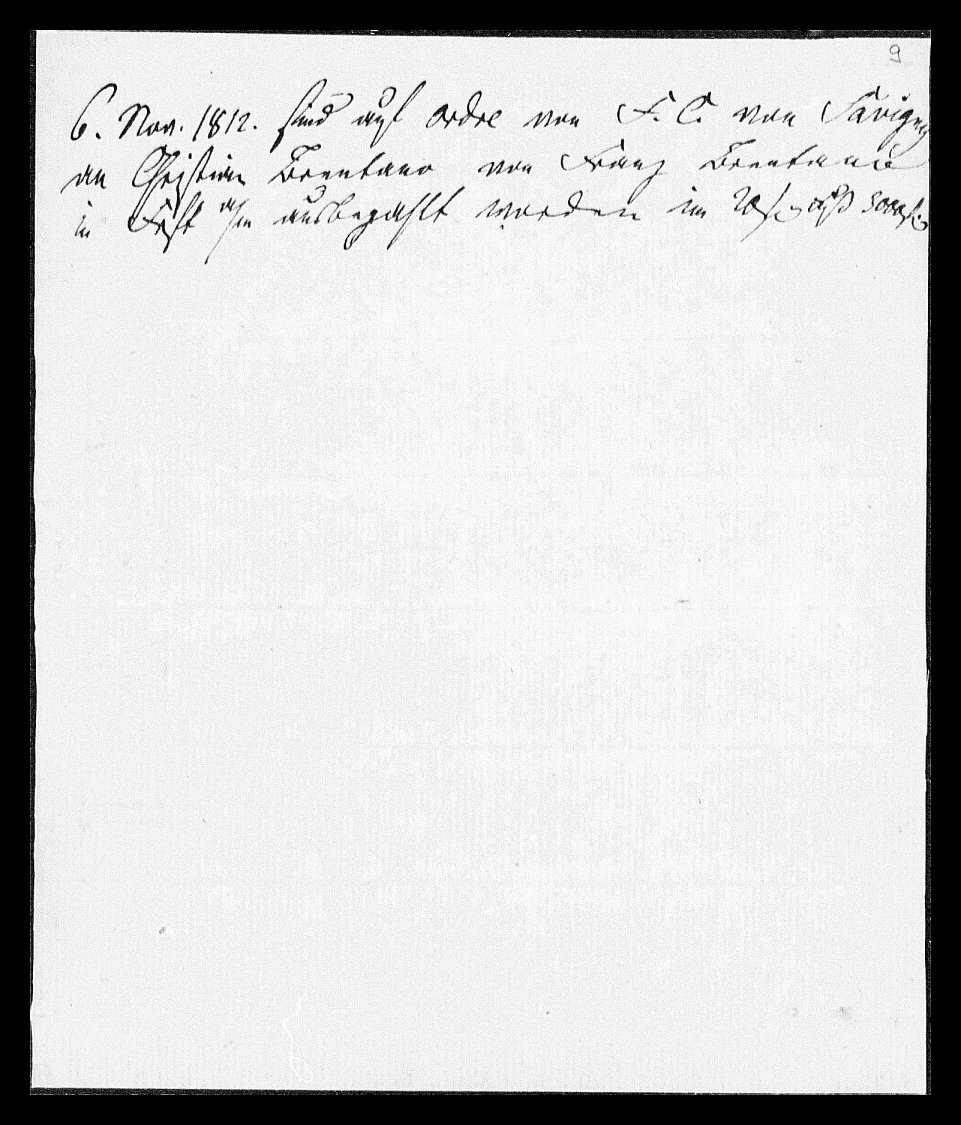 9
6. Nov. 1812. sind auf ordre von F. C. von Savigny
an Christian Brentano von Franz Brentano
in Frft a/m ausbezahlt worden im 20 f. 3000 f.